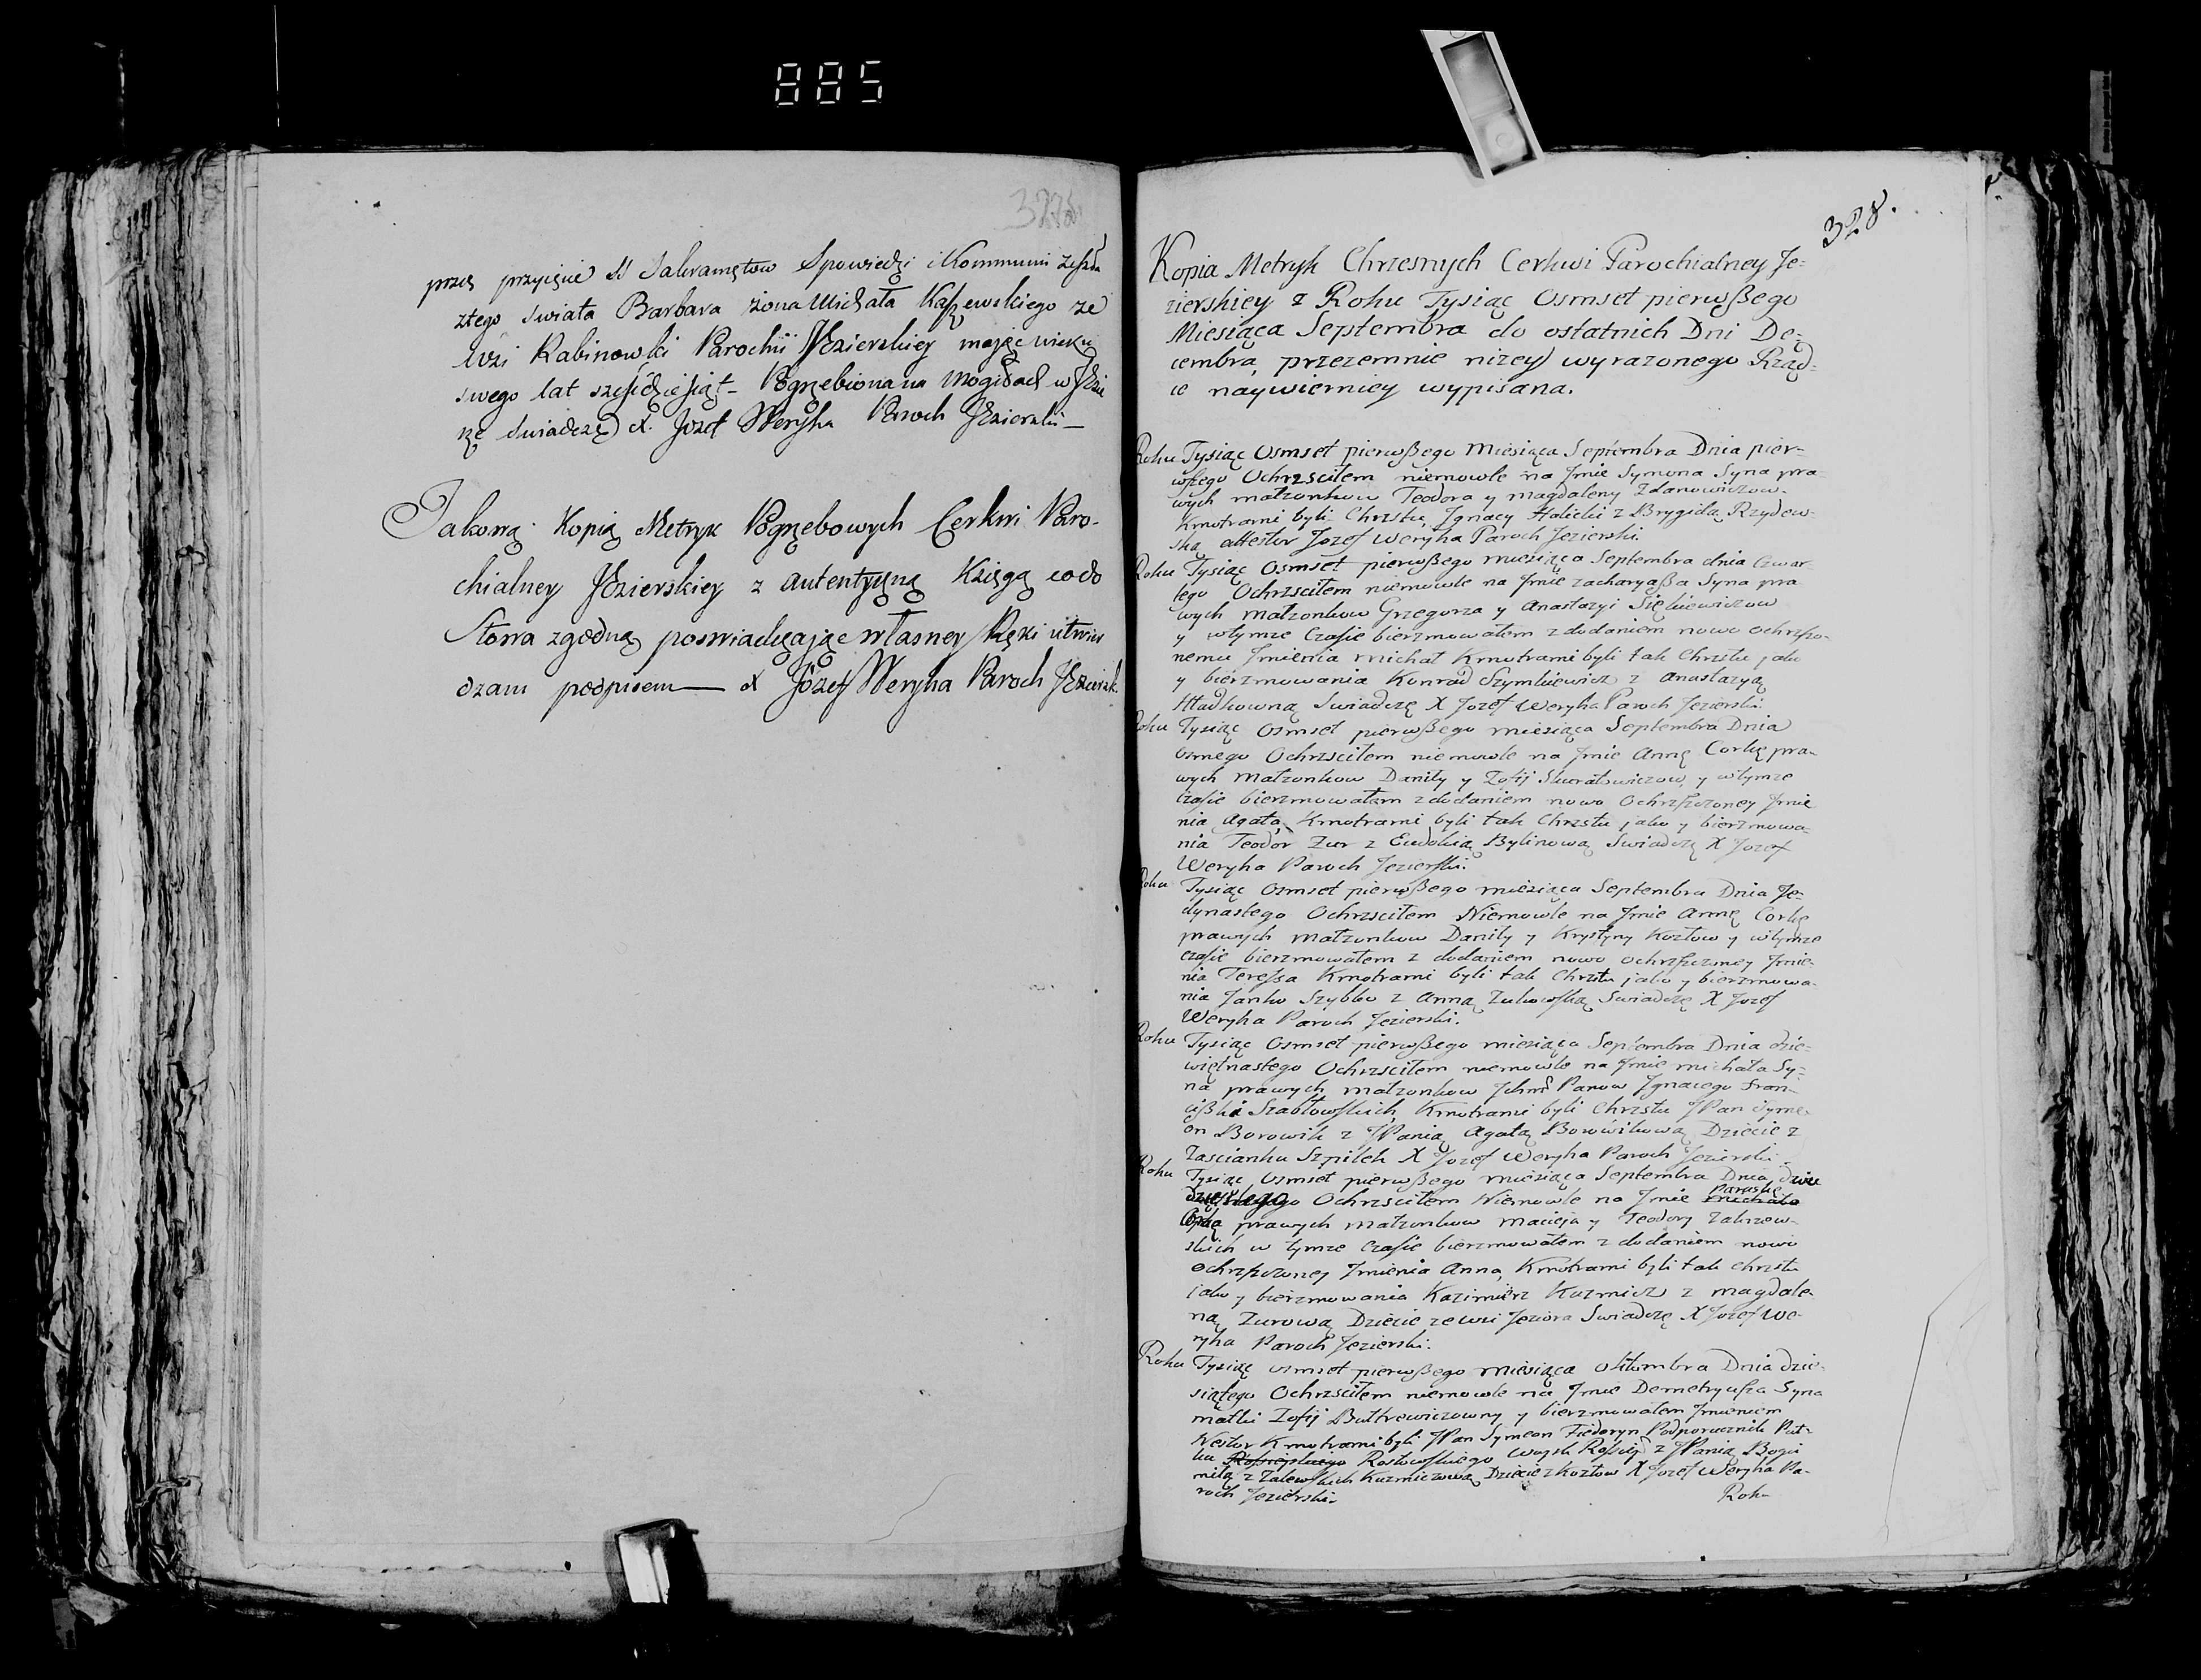 885
przez przyięcie SS Sakramętow Spowiedzi i Kommunii zeszła
ztego Swiata Barbara żona Michała Kaszewskiego ze
Wsi Rabinowki Parochii Jezierskiey maiąc wieku
swego lat szesidziesiąt - Pogrzebiona na Mogiłach w Jezie
rze Swiadczę X. Jozef Weryha Paroch Jezierski -
Takową Kopią Metryk Pogrzebowych Cerkwi Paro-
chialney Jezierskiey z autentyczną Księgą co do
Słowa zgodną poswiadczaiąc własney Ręki utwier
dzam podpisem - X Józef Weryha Paroch Jeziersk.
328.
Kopia Metryk Chrzesnych Cerkwi Parochialney Je=
zierskiey z Roku Tysiąc Osmset pierwßego
Miesiąca Septembra do ostatnich Dni De-
cembra, przezemnie niżey wyrażonego Rząd-
ie naywierniey wypisana.
Roku Tysiąc Osmset pierwßego Miesiąca Septembra Dnia pier-
wszego Ochrzciłem niemowle na Jmie Symona Syna pra-
wych małżonkow Teodora y Magdaleny Zdanowiczow.
Kmotrami byli Chrzstu, Jgnacy Halicki z Brygidą Rzydew-
ską attestor Jozef Weryha Paroch Jezierski.
Roku Tysiąc Osmset pierwßego miesiąca Septembra dnia Czwar-
tego Ochrzsciłem niemowle na Jmie zacharyaßa Syna pra
wych małżonkow Grzegorza y Anastazyi Sięckiewiczow
y wtymże Czasie bierzmowałem z dodaniem nowo ochrzszo-
nemu Jmienia Michał Kmotrami byli tak Chrzstu jako
y bierzmowania Konrad Szymkiewicz z Anastazyą
Hładkowną Swiadczę X Jozef Weryha Paroch Jezierski.
Roku Tysiąc Osmset pierwßego miesiąca Septembra Dnia
osmego Ochrzsciłem niemowle na Jmie Annę Corkę pra-
wych Małżonkow Daniły y Zofij Skuratowiczow, y wtymże
Czasie bierzmowałem z dodaniem nowo Ochrzszczoney Jmie
nia Agata Kmotrami byli tak Chrzstu jako y bierzmowa-
nia Teodor Zur z Eudokią Bylinową Swiadczę X Jozef
Weryha Paroch Jezierski.
Roku Tysiąc Osmset pierwßego miesiąca Septembra Dnia Je-
dynastego Ochrzsciłem Niemowle na Jmie Annę Corkę
prawych małżonkow Daniły y Krystyny Kozłow y wtymże
czasie bierzmowałem z dodaniem nowo ochrzszczoney Jmie-
nia Teressa Kmotrami byli tak Chrztu jako y bierzmowa-
nia Janko Szybko z Anną Zukowską Swiadczę X Jozef
Weryha Paroch Jezierski.
Roku Tysiąc Osmset pierwßego miesiąca Septembra Dnia dzie-
więtnastego Ochrzsciłem niemowle na Jmie michała Sy-
na prawych małżonkow Panow Jgnacego Fran-
cißki Szabłowskich, Kmotrami byli Chrzstu JPan Syme-
on Borowik z JPanią Agatą Borowikową Dziecie z
Zascianku Szpilek X Jozef Weryha Paroch Jezierski.
Roku Tysiąc Osmset pierwßego miesiąca Septembra Dnia, dwu
dziestego Ochrzsciłem Niemowle na Jmie michała Paraskę
Corkę prawych małżonkow Macieja y Teodory Zakrzew-
skich w tymże Czasie bierzmowałem z dodaniem nowo
ochrzszczoney Jmienia Anna, Kmotrami byli tak chrzstu
jako y bierzmowania Kazimierz Kuzmicz z magdale-
ną Zurową Dziecie ze wsi Jeziora Swiadczę X Jozef We-
ryha Paroch Jezierski.
Roku Tysiąc osmset pierwßego miesiąca oktombra Dnia dzie-
siątego Ochrzsciłem niemowle na Jmie Demetryusza Syna
matki Zofij Butkrewiczowny y bierzmowałem Jmieniem
Nestor Kmotrami byli JPan Symeon Fiedoryn Podporucznik Puł-
ku Rostowskiego woysk Rossiy z JPanią Bogu
miłą z Zalewskich Kuzmiczową Dziecie z Kozłow X Jozef Weryha Pa-
roch Jezierski.
Roku